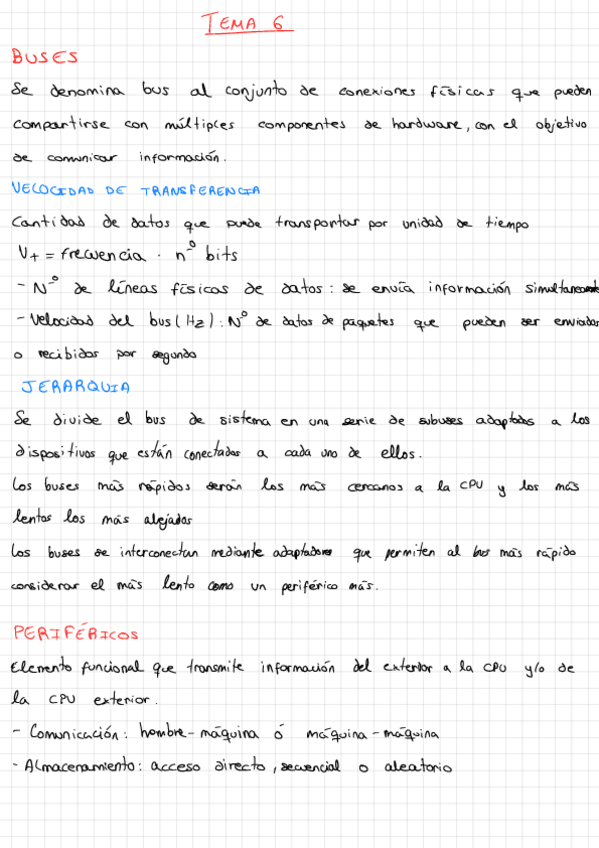 TEMA 6
BUSES
Se denomina bus al conjunto de conexiones físicas que pueden
compartirse con múltiples componentes de hardware, con el objetivo
de comunicar información.
VELOCIDAD DE TRANSFERENCIA
Cantidad de datos que puede transportar por unidad de tiempo
V+ = frecuencia · nº bits
- Nº de líneas físicas de datos: se envía información simultaneamente
- Velocidad del bus (Hz): Nº de datos de paquetes que pueden ser enviados
o recibidos por segundo
JERARQUIA
Se divide el bus de sistema en una serie de subuses adaptados a los
dispositivos que están conectados a cada uno de ellos.
Los buses más rápidos serán los más cercanos a la CPU y los más
lentos los más alejados
Los buses se interconectan mediante adaptadores que permiten al bus más rápido
considerar el más lento como un periférico más.
PERIFÉRICOS
Elemento funcional que transmite información del exterior a la CPU y/o de
la CPU exterior.
- Comunicación: hombre-máquina ó máquina-máquina
- Almacenamiento: acceso directo, secuencial o aleatorio